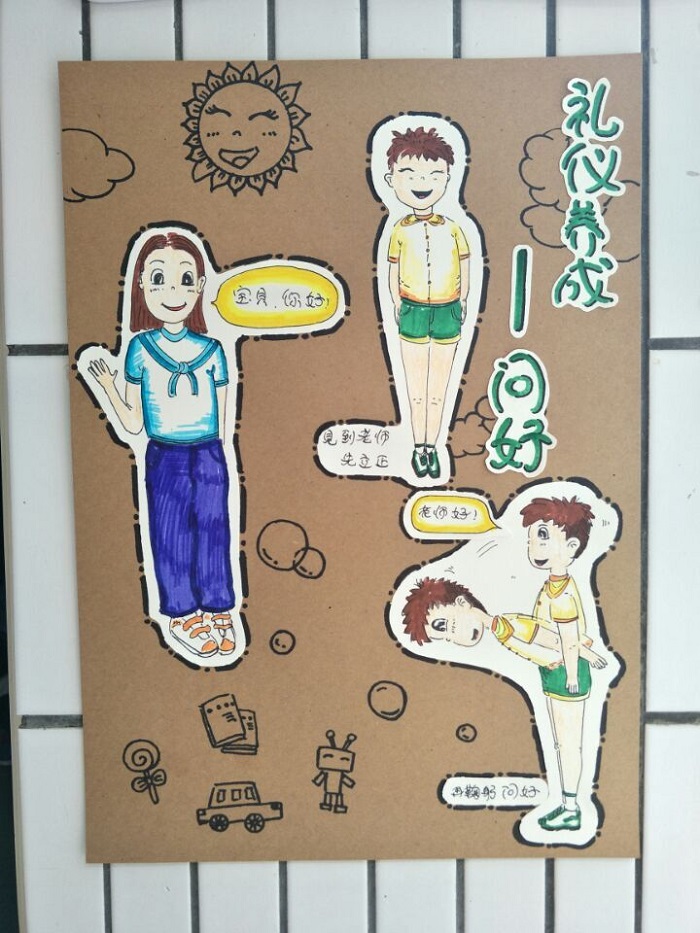 礼仪养成
—问好
宝贝，你好！
见到老师
先立正
老师好！
再鞠躬问好